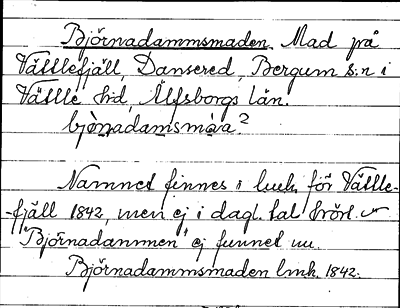 Björnadammsmaden. Mad på
Vättlefjäll, Dansered, Bergum s:n i
Vättle hd, Älfsborgs län.
bjö̀nadamsmàa?
Namnet finnes i lmk. för Vättle-
-fjäll 1842, men ej i dagl. tal hört.
"Björnadammen" ej funnet nu.
Björnadammsmaden lmk. 1842.